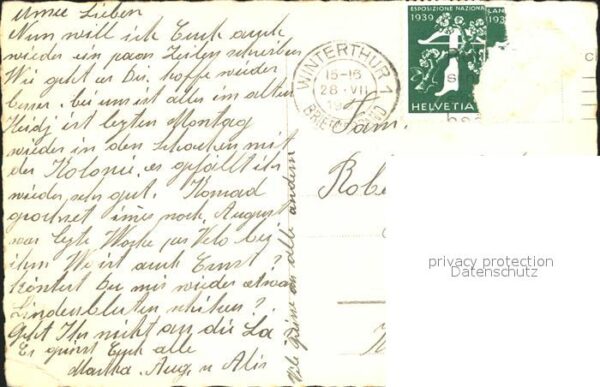 meine Lieben
Nun will ich Euch auch
wieder ein paar Zeilen schreiben
Wie geht es Dir, hoffe wieder
besser. bei uns ist alles im alten
Heidj ist letzten Montag
wieder in den Schachen mit
der Kolonie. es gefällt ihr
wieder sehr gut. Konrad
immer noch. August
war letzte Woche per Velo bej
ihm Wo ist auch Ernst?
könntet Du mir wieder etwas
Lindenblüten schicken?
Geht Ihr nicht an die La
Es grüsst Euch alle
Martha. Aug. u Alis
Viele Grüsse an alle andern
WINTERTHUR 1
15-16
28·VII
BRIEF
ESPOSIZIONE NAZIONA
LAN
1939
193
HELVETIA
Fam.
Robe
privacy protection
Datenschutz